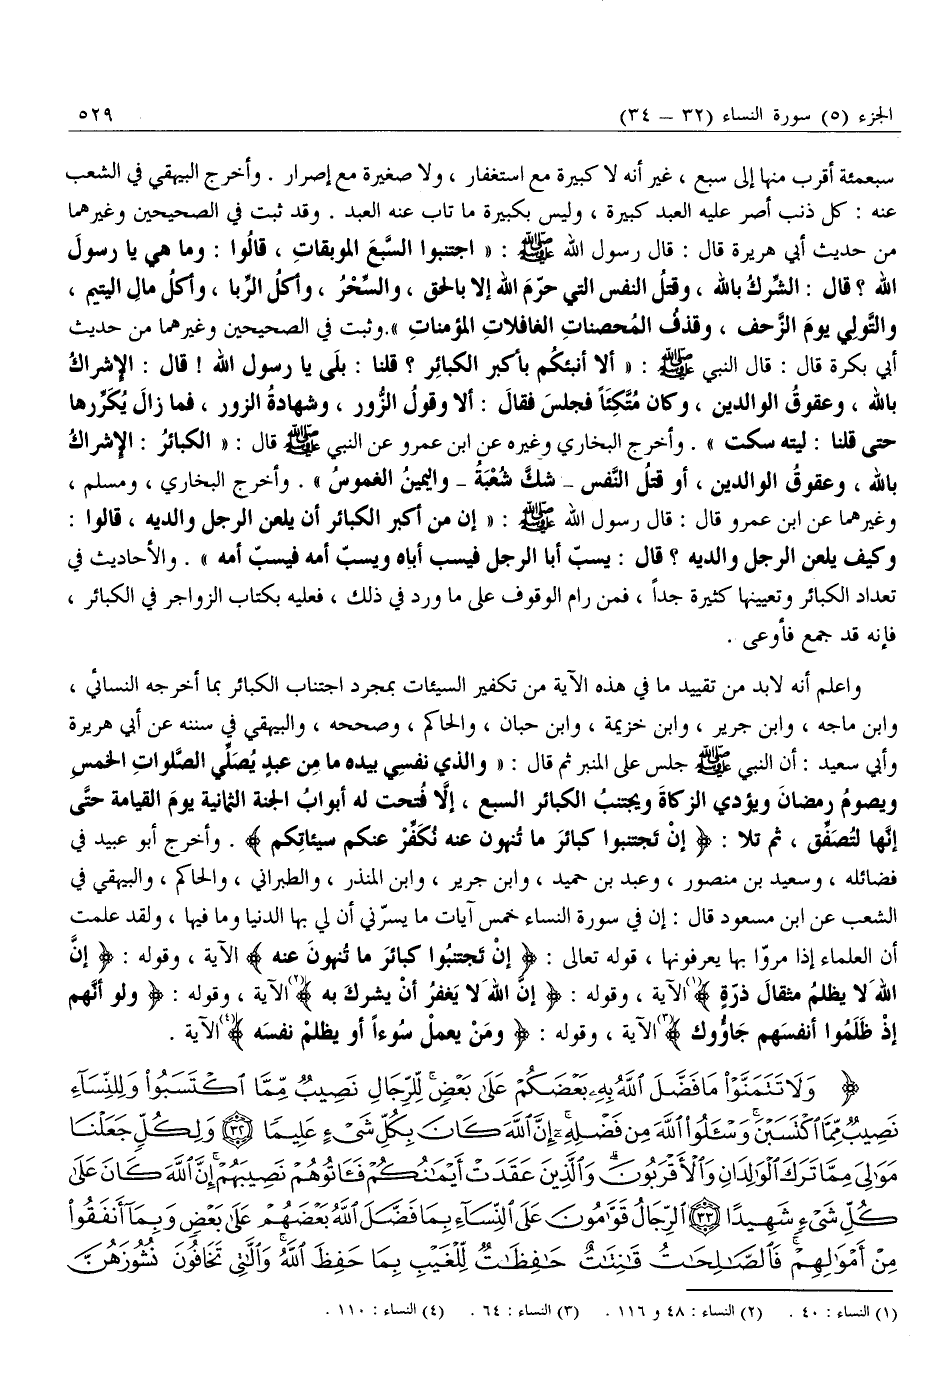 الجزء (٥) سورة النساء (٣٢ – ٣٤) ٥٢٩
سبعمئة أقرب منها إلى سبع ، غير أنه لا كبيرة مع استغفار ، ولا صغيرة مع إصرار . وأخرج البيهقي في الشعب
عنه : كل ذنب أصر عليه العبد كبيرة ، وليس بكبيرة ما تاب عنه العبد . وقد ثبت في الصحيحين وغيرهما
من حديث أبي هريرة قال : قال رسول الله ﷺ : « اجتنبوا السَّبعَ الموبقاتِ ، قالُوا : وما هي يا رسولَ
الله ؟ قال : الشِّركُ بالله ، وقتلُ النفس التي حرّمَ الله إلا بالحق ، والسِّحْرُ ، وأكلُ الرِّبا ، وأكلُ مالِ اليتيم ،
والتَّولي يومَ الزَّحف ، وقذفُ المُحصناتِ الغافلاتِ المؤمناتِ ».وثبت في الصحيحين وغيرهما من حديث
أبي بكرة قال : قال النبي ﷺ : « ألا أنبئكُم بأكبر الكبائِر ؟ قلنا : بلَى يا رسول الله ! قال : الإشراكُ
بالله ، وعقوقُ الوالدين ، وكان مُتَّكِئَاً فجلسَ فقالَ : ألا وقولُ الزُّور ، وشهادةُ الزور ، فما زالَ يُكَرِّرها
حتى قلنا : ليته سكت » . وأخرج البخاري وغيره عن ابن عمرو عن النبي ﷺ قال : « الكبائرُ : الإشراكُ
بالله ، وعقوقُ الوالدين ، أو قتلُ النَّفس ـ شكَّ شُعْبَةُ ـ واليمينُ الغموسُ » . وأخرج البخاري ، ومسلم ،
وغيرهما عن ابن عمرو قال : قال رسول الله ﷺ : « إن من أكبر الكبائر أن يلعن الرجل والديه ، قالوا :
وكيف يلعن الرجل والديه ؟ قال : يسبّ أبا الرجل فيسب أباه ويسبّ أمه فيسبّ أمه » . والأحاديث في
تعداد الكبائر وتعيينها كثيرة جداً ، فمن رام الوقوف على ما ورد في ذلك ، فعليه بكتاب الزواجر في الكبائر ،
فإنه قد جمع فأوعى .
واعلم أنه لابد من تقييد ما في هذه الآية من تكفير السيئات بمجرد اجتناب الكبائر بما أخرجه النسائي ،
وابن ماجه ، وابن جرير ، وابن خزيمة ، وابن حبان ، والحاكم ، وصححه ، والبيهقي في سننه عن أبي هريرة
وأبي سعيد : أن النبي ﷺ جلس على المنبر ثم قال : « والذي نفسي بيده ما مِن عبدٍ يُصَلِّي الصَّلواتِ الخمسِ
ويصومُ رمضانَ ويؤدي الزكاةَ ويجتنبُ الكبائر السبع ، إلَّا فُتحت له أبوابُ الجنة الثمانية يومَ القيامة حتَّى
إنَّها لتُصَفِّق ، ثم تلا : ﴿ إنْ تَجتنبوا كبائرَ ما تُنهون عنه نُكَفِّرْ عنكم سيئاتِكم ﴾ . وأخرج أبو عبيد في
فضائله ، وسعيد بن منصور ، وعبد بن حميد ، وابن جرير ، وابن المنذر ، والطبراني ، والحاكم ، والبيهقي في
الشعب عن ابن مسعود قال : إن في سورة النساء خمس آيات ما يسرّني أن لي بها الدنيا وما فيها ، ولقد علمت
أن العلماء إذا مروّا بها يعرفونها ، قوله تعالى : ﴿ إنْ تَجتنبُوا كبائرَ ما تُنهونَ عنه ﴾ الآية ، وقوله : ﴿ إنَّ
اللهَ لا يظلمُ مثقالَ ذرّةٍ ﴾(١)الآية ، وقوله : ﴿ إنَّ اللهَ لا يَغفرُ أنْ يشركَ به ﴾(٢)الآية ، وقوله : ﴿ ولو أنَّهم
إذْ ظَلَمُوا أنفسَهم جَاؤُوك ﴾(٣)الآية ، وقوله : ﴿ ومَنْ يعملْ سُوءاً أو يظلمْ نفسَه ﴾(٤)الآية .
﴿ وَلَا تَتَمَنَّوْا۟ مَا فَضَّلَ ٱللَّهُ بِهِۦ بَعْضَكُمْ عَلَىٰ بَعْضٍ ۚ لِّلرِّجَالِ نَصِيبٌ مِّمَّا ٱكْتَسَبُوا۟ ۖ وَلِلنِّسَآءِ
نَصِيبٌ مِّمَّا ٱكْتَسَبْنَ ۚ وَسْـَٔلُوا۟ ٱللَّهَ مِن فَضْلِهِۦٓ ۗ إِنَّ ٱللَّهَ كَانَ بِكُلِّ شَىْءٍ عَلِيمًا ٣٢ وَلِكُلٍّ جَعَلْنَا
مَوَٰلِىَ مِمَّا تَرَكَ ٱلْوَٰلِدَانِ وَٱلْأَقْرَبُونَ ۚ وَٱلَّذِينَ عَقَدَتْ أَيْمَـٰنُكُمْ فَـَٔاتُوهُمْ نَصِيبَهُمْ ۚ إِنَّ ٱللَّهَ كَانَ عَلَىٰ
كُلِّ شَىْءٍ شَهِيدًا ٣٣ ٱلرِّجَالُ قَوَّٰمُونَ عَلَى ٱلنِّسَآءِ بِمَا فَضَّلَ ٱللَّهُ بَعْضَهُمْ عَلَىٰ بَعْضٍ وَبِمَآ أَنفَقُوا۟
مِنْ أَمْوَٰلِهِمْ ۚ فَٱلصَّـٰلِحَـٰتُ قَـٰنِتَـٰتٌ حَـٰفِظَـٰتٌ لِّلْغَيْبِ بِمَا حَفِظَ ٱللَّهُ ۚ وَٱلَّـٰتِى تَخَافُونَ نُشُوزَهُنَّ
(١) النساء : ٤٠ . (٢) النساء : ٤٨ و ١١٦ . (٣) النساء : ٦٤ . (٤) النساء : ١١٠ .